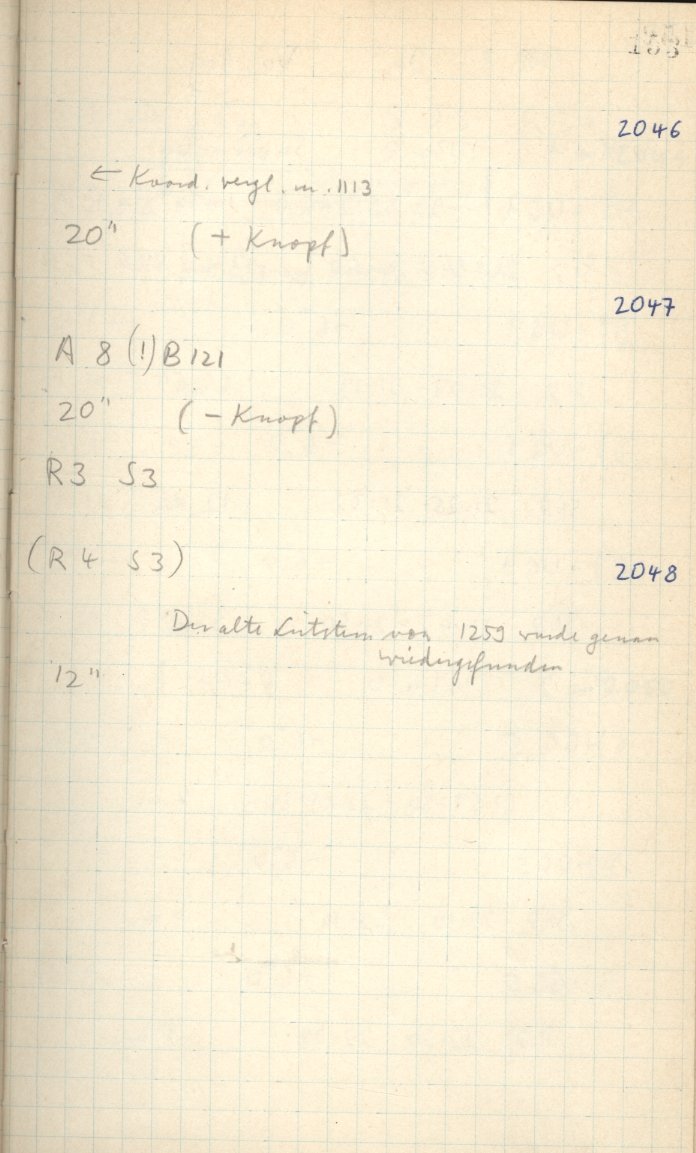 2046
← Koord. vergl. m. 1113
20" (+ Knopf)
2047
A 8 (!) B 121
20" (- Knopf)
R3 S3
(R4 S3)
2048
Der alte Leitstern von 1259 wurde genau
wiedergefunden
12"